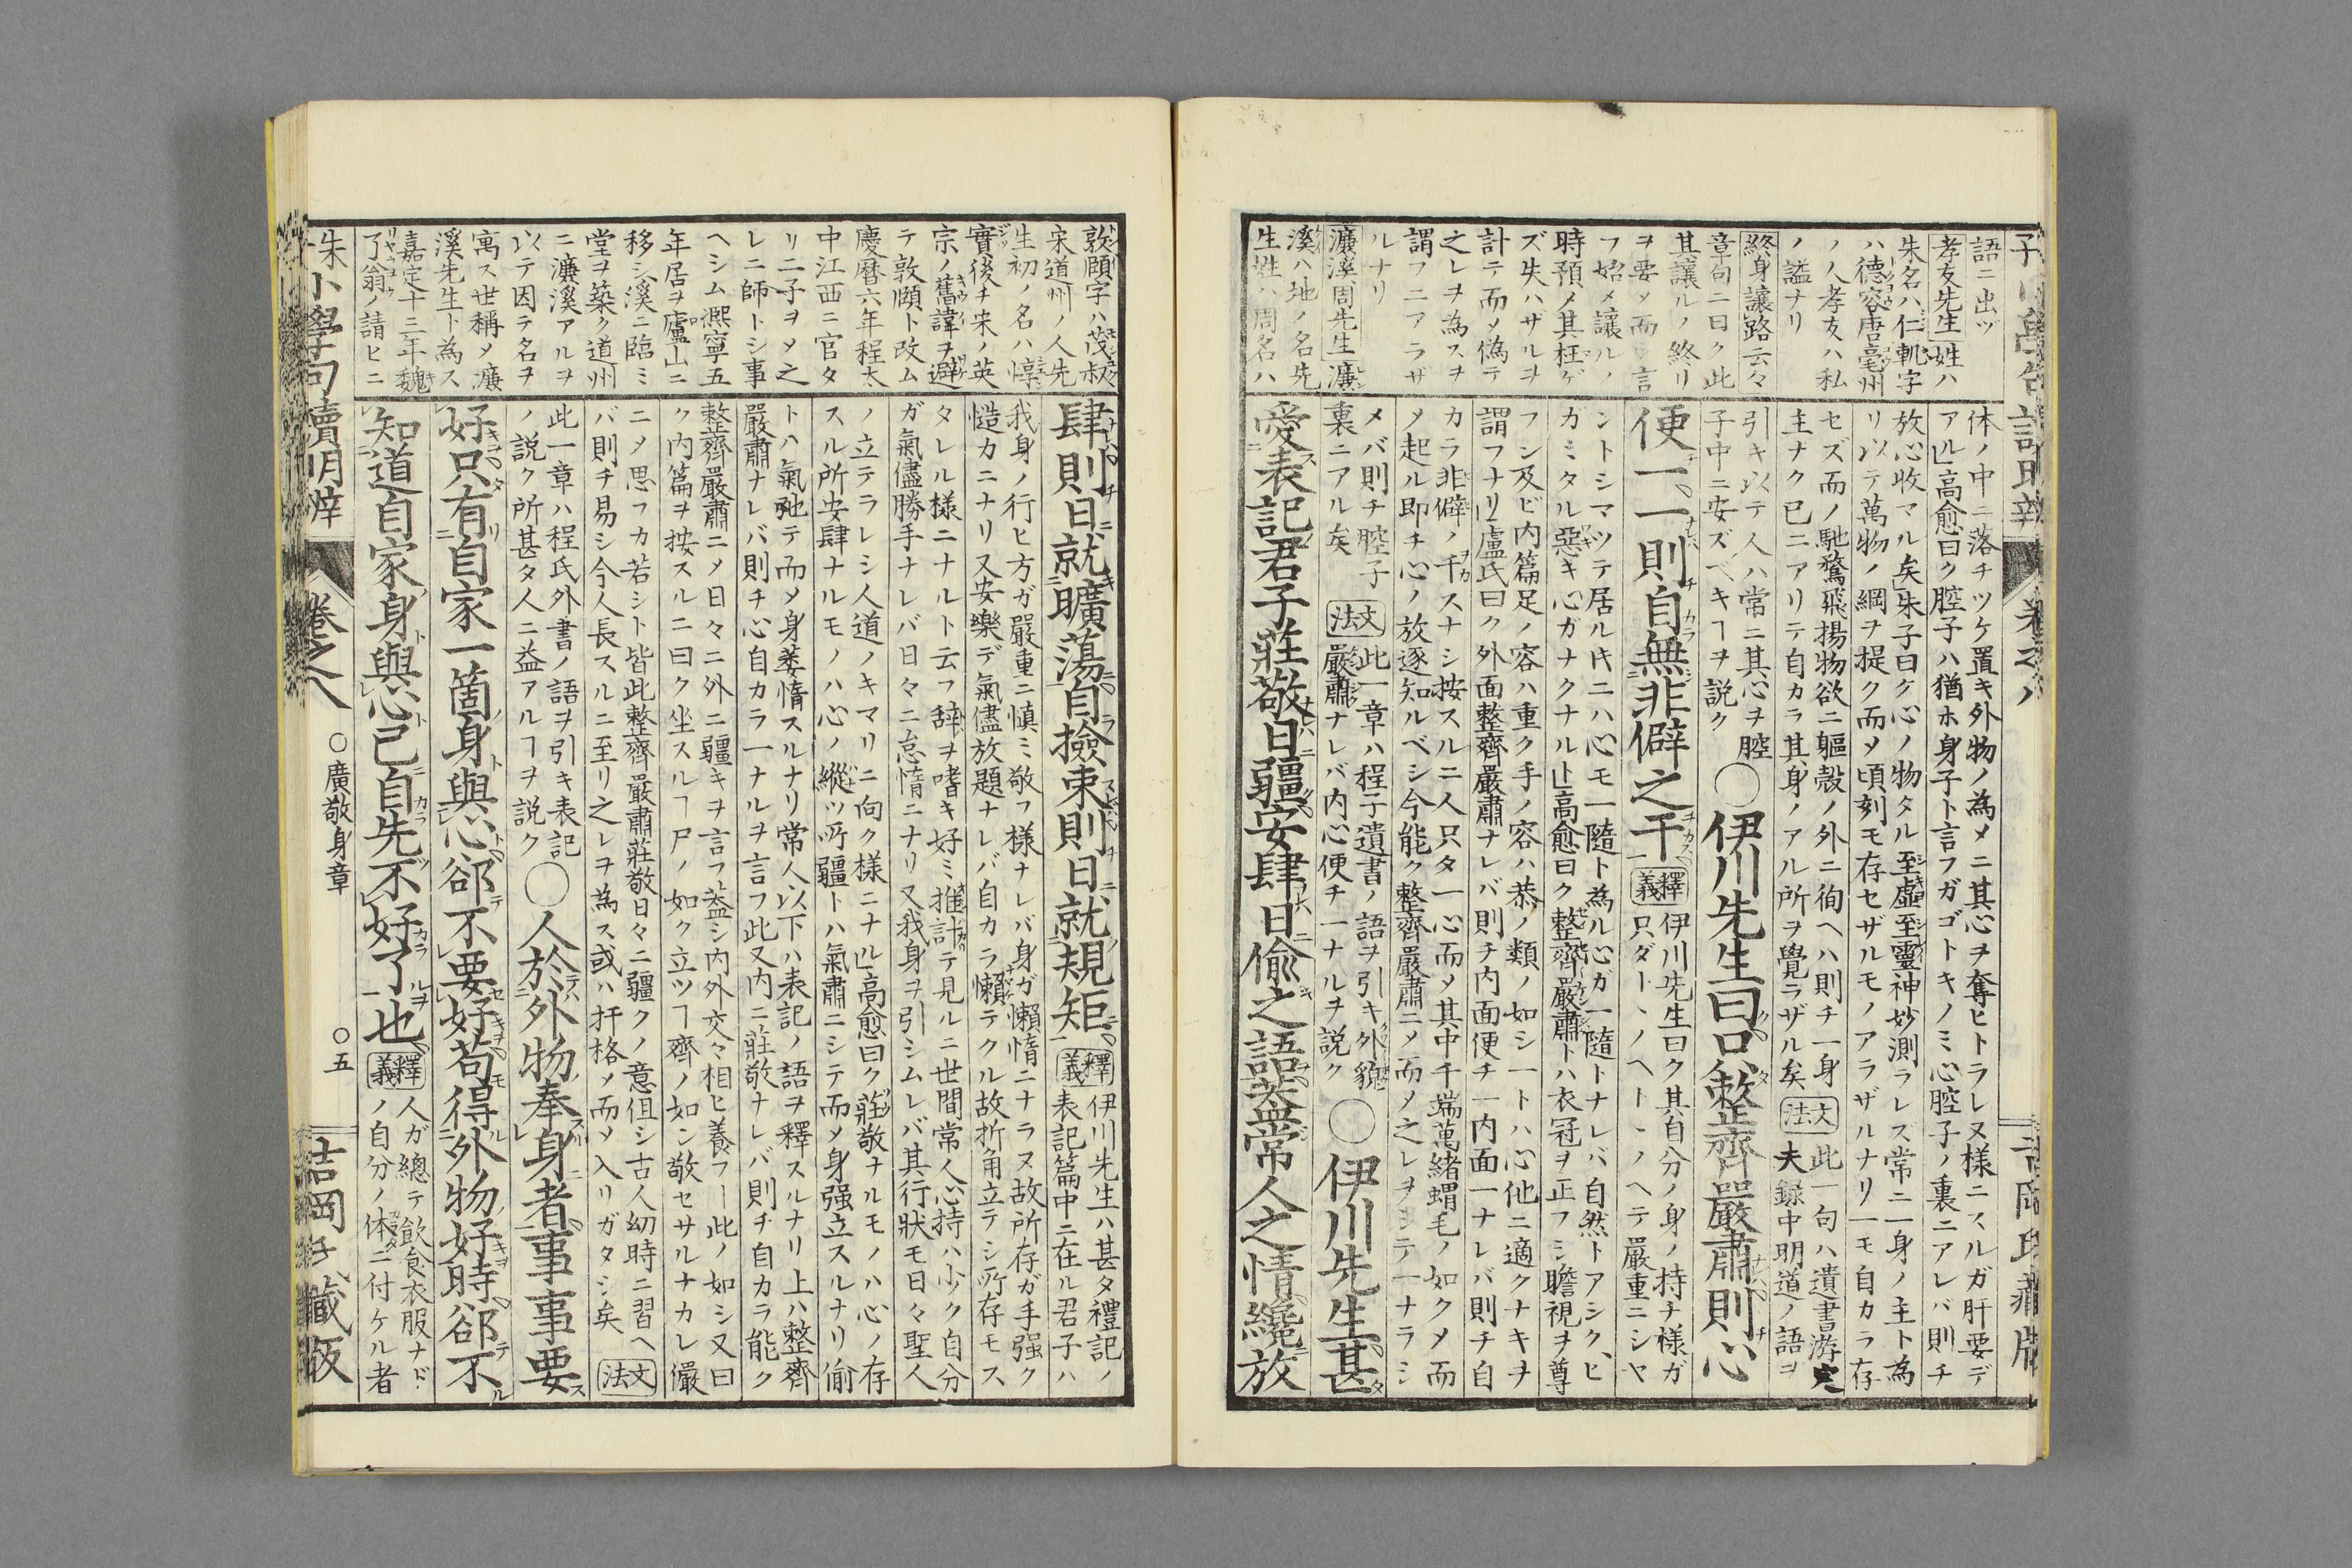 語ニ出ヅ
孝友先生姓ハ
朱名ハ仁軌字
ハ德容唐亳州
ノ人孝友ハ私
ノ謚ナリ
終身讓路云々
章句ニ曰ク此
其讓ルノ終リ
ヲ要メ而シ言
フ始メ讓ルノ
時預メ其枉ゲ
ズ失ハザルヲ
計テ而メ僞テ
之レヲ為スヲ
謂フニアラザ
ルナリ
濂溪周先生濂
溪ハ地ノ名先
生姓ハ周名ハ
体ノ中ニ落チツケ置キ外物ノ為メニ其心ヲ奪ヒトラレヌ樣ニスルガ肝要デ
アル高愈曰ク腔子ハ猶ホ身子ト言フガゴトキノミ心腔子ノ裏ニアレバ則チ
放心收マル矣朱子曰ク心ノ物タル至虛至靈神妙測ラレズ常ニ一身ノ主ト為
リ以テ萬物ノ綱ヲ提ク而メ頃刻モ存セザルモノアラザルナリ一モ自カラ存
セズ而ノ馳騖飛揚物欲ニ軀殼ノ外ニ徇ヘハ則チ一身
主ナク已ニアリテ自カラ其身ノアル所ヲ覺ラザル矣
文法
此一句ハ遺書游定
夫錄中明道ノ語ヲ
引キ以テ人ハ常ニ其心ヲ腔
子中ニ安ズベキヿヲ説ク
〇伊川先生曰只整齊嚴肅則心
便一、一則自無非僻之干
釋義
伊川先生曰ク其自分ノ身ノ持チ樣ガ
只ダトヽノヘトヽノヘテ嚴重ニシヤ
ントシマツテ居ル時ニハ心モ一隨ト為ル心ガ一隨トナレバ自然トアシク、ヒ
ガミタル惡キ心ガナクナルト高愈曰ク整齊嚴肅トハ衣冠ヲ正フシ瞻視ヲ尊
フシ及ビ内篇足ノ容ハ重ク手ノ容ハ恭ノ類ノ如シ一トハ心他ニ適クナキヲ
謂フナリ盧氏曰ク外面整齊嚴肅ナレバ則チ内面便チ一内面一ナレバ則チ自
カラ非僻ノ干スナシ按スルニ人只タ一心而メ其中千端萬緒蝟毛ノ如クメ而
メ起ル即チ心ノ放逐知ルベシ今能ク整齊嚴肅ニメ而メ之レヲシテ一ナラシ
メバ則チ腔子
裏ニアル矣
文法
此一章ハ程子遺書ノ語ヲ引キ外貌
嚴肅ナレバ内心便チ一ナルヲ説ク
〇伊川先生甚
愛表記君子莊敬日彊安肆日偷之語蓋常人之情纔放
敦頤字ハ茂叔
宋道州ノ人先
生初ノ名ハ惇
實後チ宋ノ英
宗ノ舊諱ヲ避
テ敦頤ト改ム
慶曆六年程太
中江西ニ官タ
リ二子ヲメ之
レニ師トシ事
ヘシム熙寧五
年居ヲ廬山ニ
移シ溪ニ臨ミ
堂ヲ築ク道州
ニ濂溪アルヲ
以テ因テ名ヲ
寓ス世稱メ濂
溪先生ト為ス
嘉定十三年魏
了翁ノ請ヒニ
肆則日就曠蕩自撿束則日就規矩
釋義
伊川先生ハ甚タ禮記ノ
表記篇中ニ在ル君子ハ
我身ノ行ヒ方ガ嚴重ニ愼ミ敬フ樣ナレバ身ガ懶惰ニナラヌ故所存ガ手强ク
慥カニナリ又安樂デ氣儘放題ナレバ自カラ懶テクル故折角立テシ所存モス
タレル樣ニナルト云フ辞ヲ嗜キ好ミ推計テ見ルニ世間常人心持ハ少ク自分
ガ氣儘勝手ナレバ日々ニ怠惰ニナリ又我身ヲ引シムレバ其行狀モ日々聖人
ノ立テラレシ人道ノキマリニ向ク樣ニナル高愈曰ク莊敬ナルモノハ心ノ存
スル所安肆ナルモノハ心ノ縱ツ所彊トハ氣肅ニシテ而メ身强立スルナリ偷
トハ氣弛テ而メ身萎惰スルナリ常人以下ハ表記ノ語ヲ釋スルナリ上ハ整齊
嚴肅ナレバ則チ心自カラ一ナルヲ言フ此又内ニ莊敬ナレバ則チ自カラ能ク
整齊嚴肅ニメ日々ニ外ニ彊キヲ言フ蓋シ内外交々相ヒ養フー此ノ如シ又曰
ク内篇ヲ按スルニ曰ク坐スルヿ尸ノ如ク立ツヿ齊ノ如ン敬セサルナカレ儼
ニメ思フカ若シト皆此整齊嚴肅莊敬日々ニ彊クノ意但シ古人幼時ニ習ヘ
バ則チ易シ今人長スルニ至リ之レヲ為ス或ハ扞格メ而メ入リガタシ矣
文法
此一章ハ程氏外書ノ語ヲ引キ表記
ノ説ク所甚タ人ニ益アルヿヲ説ク
〇人於外物奉身者事事要
好只有自家一箇身與心郤不要好苟得外物好時郤不
知道自家身與心已自先不好了也
釋義
人ガ總テ飲食衣服ナド
ノ自分ノ体ニ付ケル者
朱小學句讀明辨
卷之八
〇廣敬身章
〇五
吉岡氏藏版